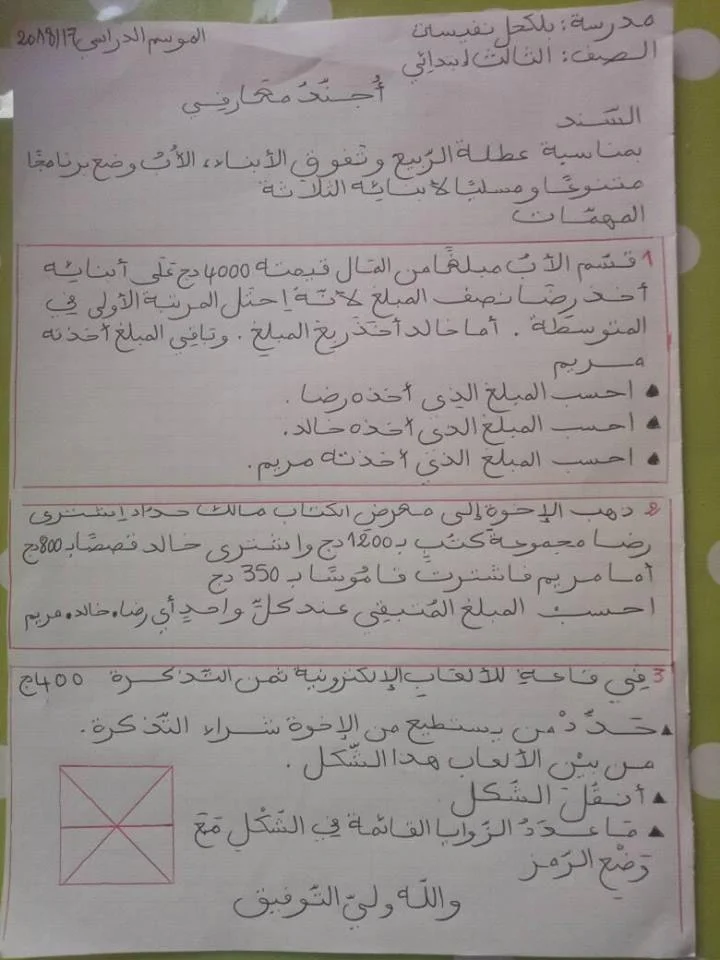 مدرسة: بلكحل نفيسة
الموسم الدراسي 2018/17
الصف: الثالث ابتدائي
أُجنّدُ معارفي
السّند
بمناسبة عطلة الرّبيع وتفوق الأبناء، الأبُ وضع برنامجًا
متنوعًا ومسليًا لأبنائه الثلاثة
المهمّات
1 قسّم الأبُ مبلغًا من المال قيمته 4000 دج على أبنائه
أخذ رضا نصف المبلغ لأنّهُ إحتل المرتبة الأولى في
المتوسطة. أما خالد أخذ ربع المبلغ. وباقي المبلغ أخذته
مريم
▲ احسب المبلغ الذي أخذه رضا.
▲ احسب المبلغ الذي أخذه خالد.
▲ احسب المبلغ الذي أخذته مريم.
2 ذهب الإخوة إلى معرض الكتاب مالك حداد إشترى
رضا مجموعة كتُبٍ بـ 1200 دج واشترى خالد قصصًا بـ 800 دج
أما مريم فاشترت قاموسًا بـ 350 دج
احسبْ المبلغ المُتبقي عند كلِّ واحدٍ أي رضا. خالد. مريم
3 في قاعةِ للألعابِ الإلكترونية ثمن التّذكرة 400 ج
▲ حَدّدْ من يستطيع من الإخوة شراء التّذكرة.
من بيْن الألعاب هذا الشّكل.
▲ أنقُلَ الشّكل
▲ مَا عدَدُ الزّوايا القائمة في الشّكْل مَعَ
وَضْع الرّمز
واللّه وليّ التّوفيق